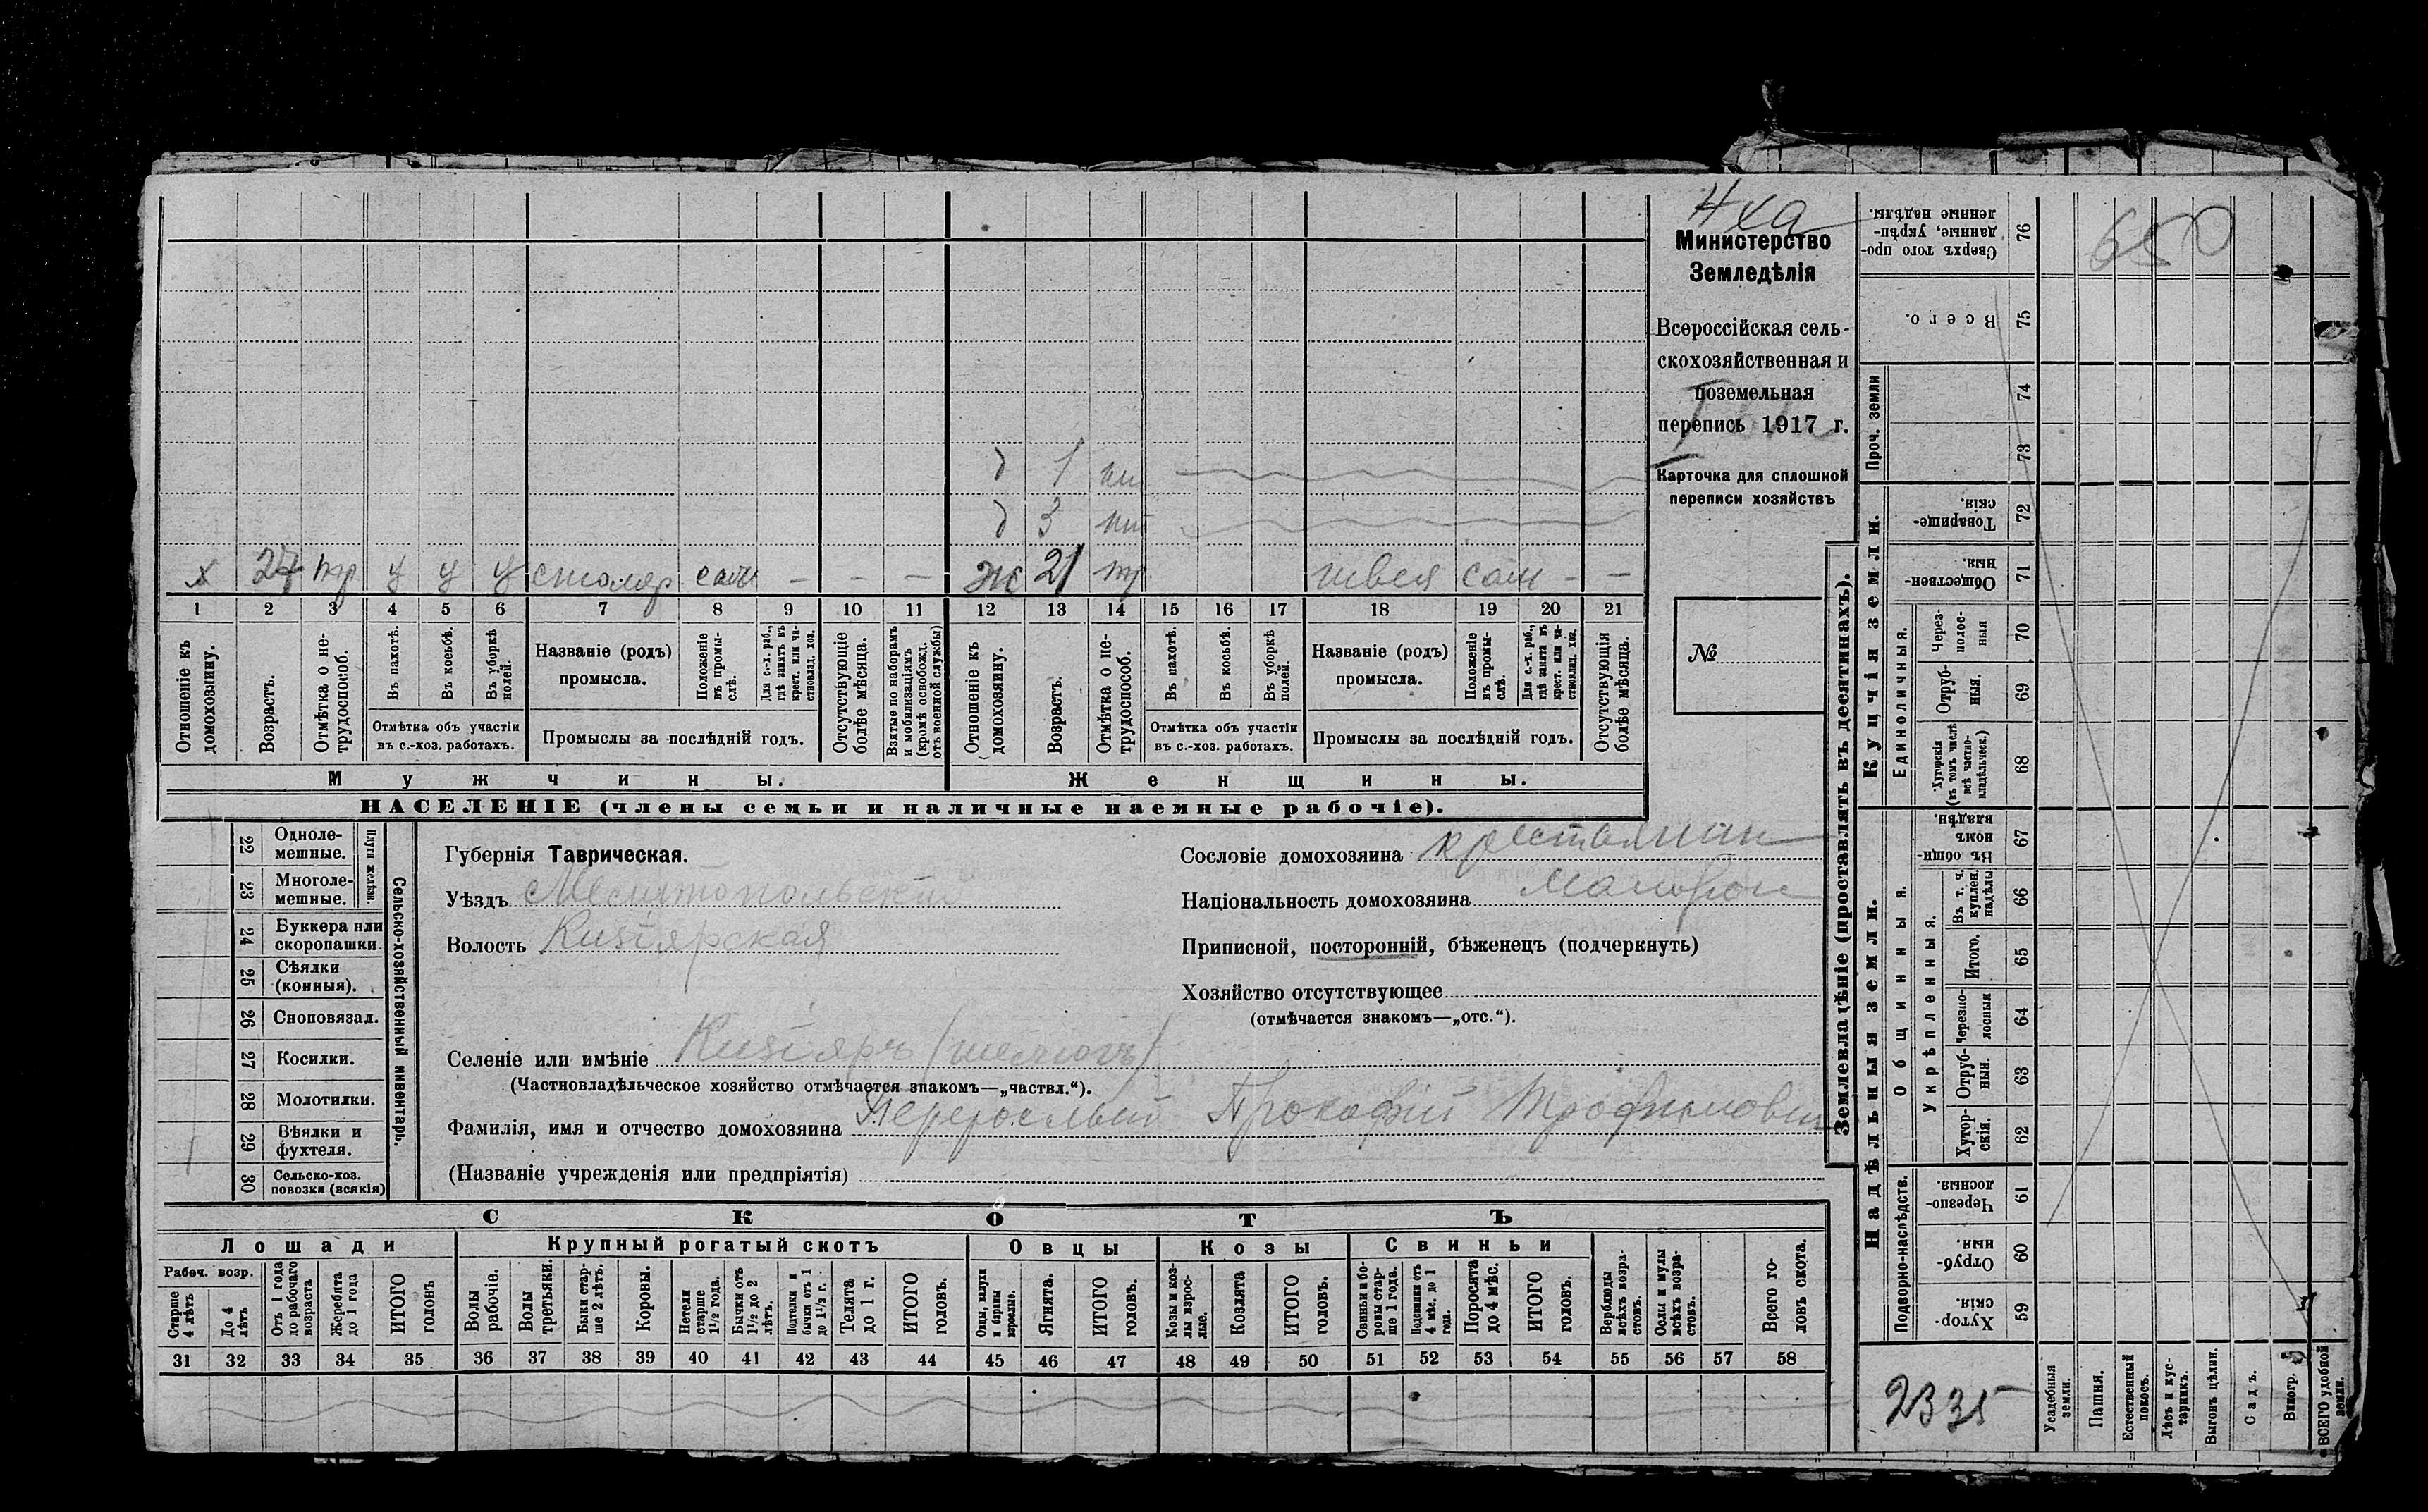 Министерство
Земледѣлія
Всероссійская сель-
скохозяйственная и
поземельная
перепись 1917 г.
Карточка для сплошной
переписи хозяйствъ
№
д 1 нт
д 3 нт
х 27 тр у у у столяр сам – – – ж 21 тр швея сам – –
1 2 3 4 5 6 7 8 9 10 11 12 13 14 15 16 17 18 19 20 21
Отношеніе къ домохозяину.
Возрастъ.
Отмѣтка о не-трудоспособ.
Въ пахотѣ.
Въ косьбѣ.
Въ уборкѣ полей.
Отмѣтка объ участіи
въ с.-хоз. работахъ.
Названіе (родъ)
промысла.
Положеніе въ промы-слѣ.
Для с.-х. раб., гдѣ занятъ въ крест. или ча-стновлад. хоз.
Промыслы за послѣдній годъ.
Отсутствующіе болѣе мѣсяца.
Взятые по наборамъ и мобилизаціямъ (кромѣ освобожд. отъ военной службы)
Отношеніе къ домохозяину.
Возрастъ.
Отмѣтка о не-трудоспособ.
Въ пахотѣ.
Въ косьбѣ.
Въ уборкѣ полей.
Отмѣтка объ участіи
въ с.-хоз. работахъ.
Названіе (родъ)
промысла.
Положеніе въ промы-слѣ.
Для с.-х. раб., гдѣ занята въ крест. или ча-стновлад. хоз.
Промыслы за послѣдній годъ.
Отсутствующія болѣе мѣсяца.
Мужчины. Женщины.
НАСЕЛЕНІЕ (члены семьи и наличные наемные рабочіе).
Сельско-хозяйственный инвентарь.
Плуги желѣзн.
22 Одноле-мешные.
23 Многоле-мешные.
24 Буккера или скоропашки.
25 Сѣялки (конныя).
26 Сноповязал.
27 Косилки.
28 Молотилки.
29 Вѣялки и фухтеля.
30 Сельско-хоз. повозки (всякія)
Губернія Таврическая.
Уѣздъ Мелитопольскій
Волость Кизіярская
Селеніе или имѣніе Кизіяръ
(Частновладѣльческое хозяйство отмѣчается знакомъ—„частвл.“).
Фамилія, имя и отчество домохозяина Перерослый Прокофій Трофимович
(Названіе учрежденія или предпріятія)
Сословіе домохозяина крестьянин
Національность домохозяина малорос
Приписной, посторонній, бѣженецъ (подчеркнуть)
Хозяйство отсутствующее
(отмѣчается знакомъ—„отс.“).
СКОТЪ
Лошади Крупный рогатый скотъ Овцы Козы Свиньи
Рабоч. возр.
Старше 4 лѣтъ
До 4 лѣтъ
Отъ 1 года до рабочаго возраста
Жеребята до 1 года
ИТОГО головъ
Волы рабочіе.
Волы третьяки.
Быки стар-ше 2 лѣтъ.
Коровы.
Нетели старше 1½ года.
Бычки отъ 1½ до 2 лѣтъ.
Подтелки и бычки отъ 1 до 1½ г.
Телята до 1 г.
ИТОГО головъ.
Овцы, валухи и бараны взрослые.
Ягнята.
ИТОГО головъ.
Козы и коз-лы взрос-лые.
Козлята
ИТОГО головъ.
Свиньи и бо-ровы стар-ше 1 года.
Подсвинки отъ 4 мѣс. до 1 года.
Поросята до 4 мѣс.
ИТОГО головъ.
Верблюды всѣхъ возра-стовъ.
Ослы и мулы всѣхъ возра-стовъ.
Всего го-ловъ скота.
31 32 33 34 35 36 37 38 39 40 41 42 43 44 45 46 47 48 49 50 51 52 53 54 55 56 57 58
Землевладѣніе (проставлять въ десятинахъ).
650
76 Сверхъ того про-данные, укрѣп-ленные надѣлы.
75 Всего.
Проч. земли
74
73
Купчія земли.
72 Товарище-скія.
71 Обществен-ныя.
Единоличныя.
70 Через-полос-ныя
69 Отруб-ныя.
68 Хуторскія (въ томъ числѣ всѣ частно-владѣльческ.)
Надѣльныя земли.
Общинныя.
67 Въ общи-номъ владѣн.
Укрѣпленныя.
66 Въ т. ч. куплен. надѣлы
65 Итого.
64 Черезпо-лосныя
63 Отруб-ныя.
62 Хутор-скія.
Подворно-наслѣдств.
61 Черезпо-лосныя.
60 Отруб-ныя.
59 Хутор-скія.
2335
Усадебныя земли.
Пашня.
Естественный покосъ.
Лѣсъ и кус-тарникъ.
Выгонъ цѣлин.
Садъ.
Виногр.
ВСЕГО удобной земли.